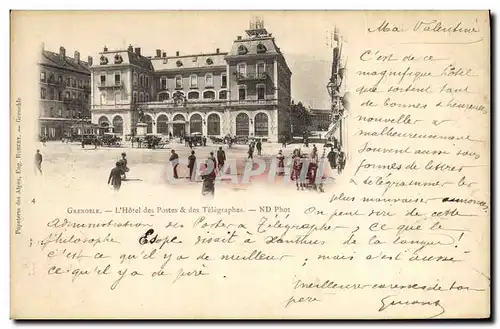 Ma Valentine
C'est de ce
magnifique hôtel
que sortent tant
de bonnes & heureuses
nouvelles &
malheureusement
souvent aussi sous
formes de lettres
& télégrammes les
plus mauvaises annonces.
GRENOBLE. — L'Hôtel des Postes & des Télégraphes. — ND Phot
On peut dire de cette
Administration des Postes & Télégraphes, ce que le
philosophe Esope disait à Xanthus de la langue!
c'est ce qu'il y a de meilleur, mais c'est aussi
ce qu'il y a de pire.
Meilleures caresses de ton
père
4
Papeterie des Alpes, Eug. ROBERT. — Grenoble
CPARAMA